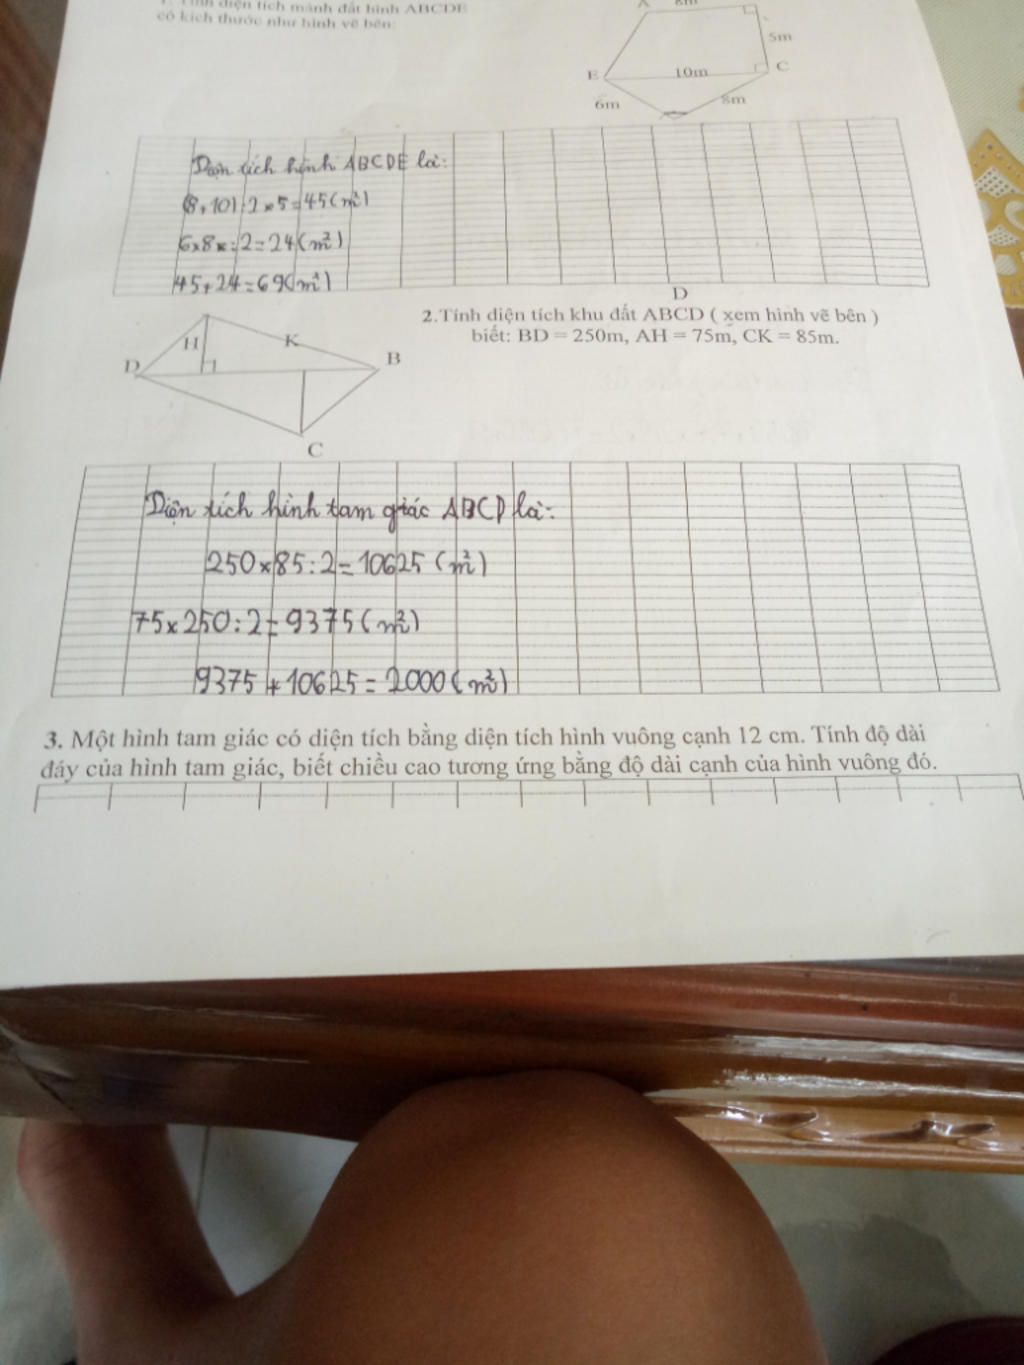 1. Tính diện tích mảnh đất hình ABCDE
có kích thước như hình vẽ bên:
A 8m
5m
E 10m C
6m 8m
Diện tích hình ABCDE là:
(8+10):2×5=45(m²)
6×8×:2=24(m²)
45+24=69(m²)
D
2.Tính diện tích khu đất ABCD ( xem hình vẽ bên )
biết: BD = 250m, AH = 75m, CK = 85m.
H K
D B
C
Diện tích hình tam giác ABCD là:
250×85:2=10625 (m²)
75×250:2=9375(m²)
9375+10625=2000(m²)
3. Một hình tam giác có diện tích bằng diện tích hình vuông cạnh 12 cm. Tính độ dài
đáy của hình tam giác, biết chiều cao tương ứng bằng độ dài cạnh của hình vuông đó.